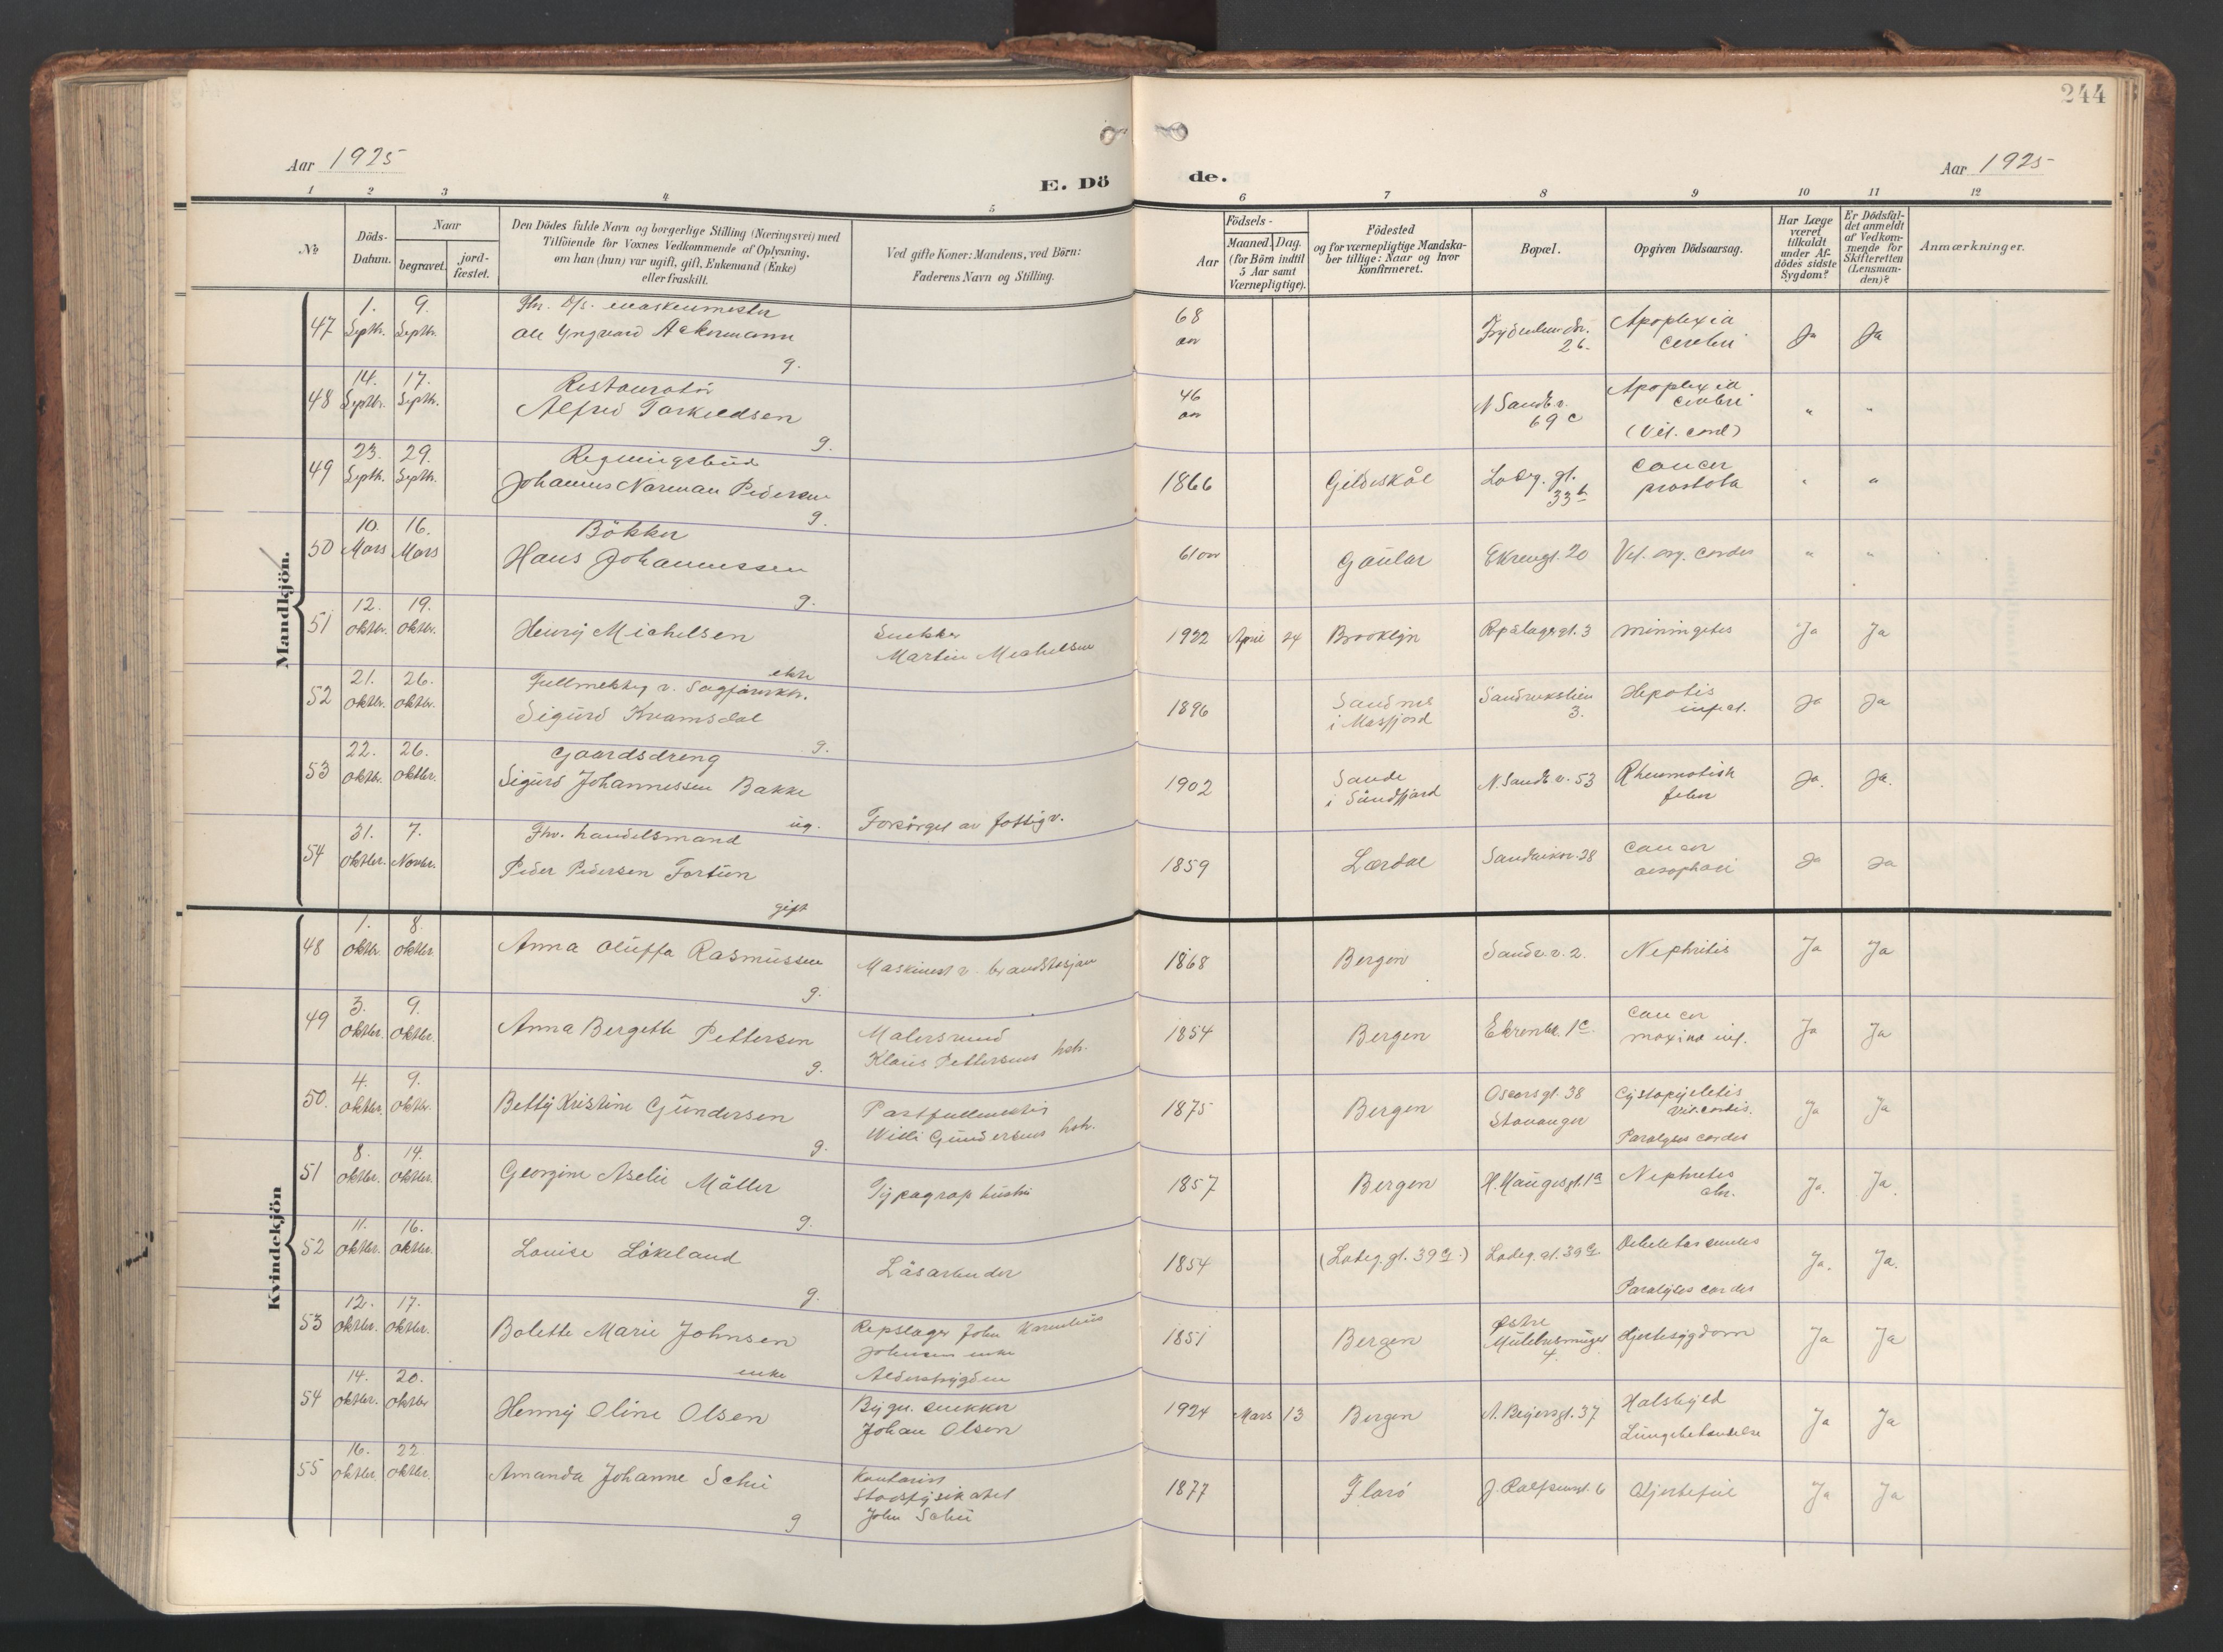 244
Aar 1925
E. Dö
de.
Aar 1925
1 2 3 4 5 6 7 8 9 10 11 12
No
Döds-
Datum.
Naar
begravet.
jord-
fæstet.
Den Dödes fulde Navn og borgerlige Stilling (Næringsvei) med
Tilföiende for Voxnes Vedkommende af Oplysning,
om han (hun) var ugift, gift, Enkemand (Enke)
eller fraskilt.
Ved gifte Koner: Mandens, ved Börn:
Faderens Navn og Stilling.
Födsels-
Aar
Maaned. Dag.
(for Börn indtil
5 Aar samt
Værnepligtige).
Födested
og for værnepligtige Mandska-
ber tillige: Naar og hvor
konfirmeret.
Bopæl.
Opgiven Dödsaarsag.
Har Læge
været
tilkaldt
under Af-
dödes sidste
Sygdom?
Er Dödsfal-
det anmeldt
af Vedkom-
mende for
Skifteretten
(Lensman-
den)?
Anmærkninger.
Mandkjön.
47 1. Septbr. 9. Septbr.
Ole Yngvard Ackermann
g.
68 aar
26. Apoplexia cerebri Ja Ja
48 14. Septbr. 17. Septbr.
Restauratör
Alfred Torkildsen
g.
46 aar
N Sandv. 69 c Apoplexia cerebri
(Vit. cord) " "
49 23. Septbr. 29. Septbr.
Regningsbud
Johannes Norman Pedersen
g.
1866 Gildeskål Ladeg. gt. 33 b cancer prostata " "
50 10. Mars 16. Mars
Bökker
Hans Johannessen
g.
61 aar Gaular Ekrengt. 20 Vit. org. cordis " "
51 12. oktbr. 19. oktbr.
Henry Michelsen
ekte
Snekker
Martin Michelsen
1922 April 24 Brooklyn Repslagergt. 3 miningitis Ja Ja
52 21. oktbr. 26. oktbr.
Sigurd Kvamsdal
g.
1896 Sandnes
i Masfjord Sandvikslien 3. Hepatis Ja Ja
53 22. oktbr. 26. oktbr.
Gaardsdreng
Sigurd Johannessen Bakke
ug.
Forsörget av fattigv.
1902 Sande
i Sundfjord N. Sandv. v. 53 Rheumatisk feber Ja. Ja.
54 31. oktbr. 7. Novbr.
Fhv. handelsmand
Peder Pedersen Fortun
gift
1859 Lærdal Sandvikv. 28 cancer Ja Ja
Kvindekjön
48 1. oktbr. 8. oktbr.
Anna Oluffa Rasmussen
g.
Maskinist v. brandstasjon
1868 Bergen Sandv. v. 2. Nephritis Ja Ja
49 3. oktbr. 9. oktbr.
Anna Bergette Pettersen
g.
Malersvend
Klaus Pettersens hst.
1854 Bergen Ekrenbk. 1 c. cancer
maxina inf. Ja Ja
50. 4. oktbr. 9. oktbr.
Betty Kristine Gundersen
g.
Postfullmektig
Willi Gundersens hst.
1875 Bergen Oscarsgt. 38
Stavanger Cystopyelitis
Vit. cordis.
Paralyses cordis Ja Ja
51 8. oktbr. 14. oktbr.
Georgine Aselie Möller
g.
Typograf hustru
1857 Bergen H. Haugesgt. 1 a Nephritis chr. Ja. Ja.
52 11. oktbr. 16. oktbr.
Louise Lökeland
g.
Låsarbeider
1854 (Ladeg. gt. 39 a.) Ladeg. gt. 39 a.
Paralyses cordis Ja. Ja.
53 12. oktbr. 17. oktbr.
Bolette Marie Johnsen
enke
Repslager John
Johnsens enke
Alderstrygden
1851 Bergen Østre
4. Hjertesygdom Ja Ja
54 14. oktbr. 20. oktbr.
Henny Oline Olsen
Bygn. snekker
Johan Olsen
1924 Mars 13 Bergen A. Beyersgt. 37 Halsbyld
Lungebetendelse Ja Ja
55 16. oktbr. 22. oktbr.
Amanda Johanne Schie
g
Kontorist
Stadsfysikatet
John Schie
1877 Florö J. Rolfsensgt. 6 Hjertefeil Ja Ja